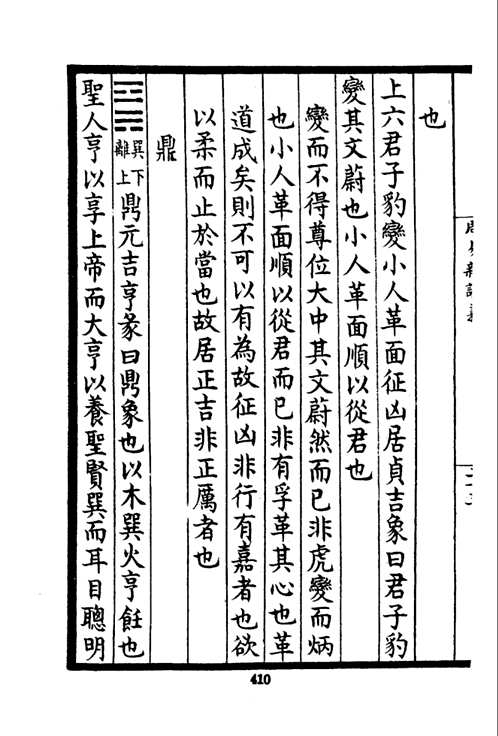 也
上六君子豹變小人革面征凶居貞吉象曰君子豹
變其文蔚也小人革面順以從君也
變而不得尊位大中其文蔚然而已非虎變而炳
也小人革面順以從君而已非有孚革其心也革
道成矣則不可以有為故征凶非行有嘉者也欲
以柔而止於當也故居正吉非正厲者也
鼎
䷱巽下離上鼎元吉亨彖曰鼎象也以木巽火亨飪也
聖人亨以享上帝而大亨以養聖賢巽而耳目聰明
410